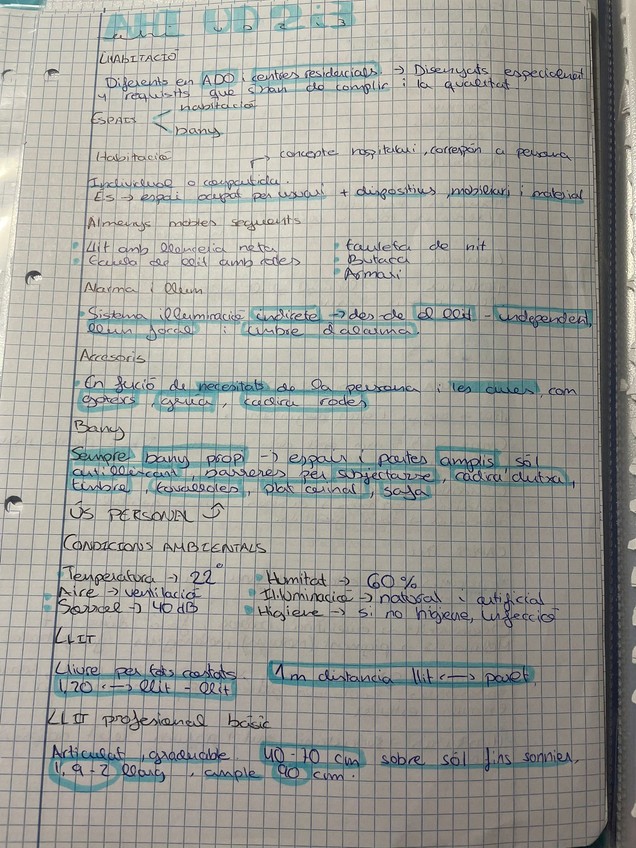 AHI UD 2 i 3
L'HABITACIÓ
Diferents en ADO i centres residencials. → Disenyats especialment
y requisits que s'han de complir i la qualitat.
habitació
ESPAIS
bany
Habitació
→ concepte hospitalari, correspón a persona
Individual o compartida.
És → espai ocupat per usuari + dispositius, mobiliari i material
Almenys mobles seguents
· Llit amb llenceria neta
· tauleta de nit
· Taula de llit amb rodes
· Butaca
· Armari
Alarma i llum
· Sistema il·luminació indirecte → des de el llit - independent,
llum focal i timbre d'alarma.
Accesoris
· En fució de necesitats de la persona i les cures, com
goters, grúa, cadira rodes
Bany
Sempre bany propi → espai i portes amplis, sól
antilliscant, barreres per subjectarse, cadira dutxa,
timbre, tovalloles, plat camal, safa
ÚS PERSONAL ⤴
CONDICIONS AMBIENTALS
· Temperatura → 22°
· Humitat → 60%
· Aire → ventilació
· Il·luminació → natural i artificial
· Soroll → 40 dB
· Higiene → si no higiene, infecció
LLIT
Lliure per tots costats.
1m distancia llit ↔ paret.
1,20 ↔ llit - llit
LLIT profesional básic
Articulat, graduable 40-70 cm sobre sól fins somier,
1,9-2 llarg, ample 90 cm.